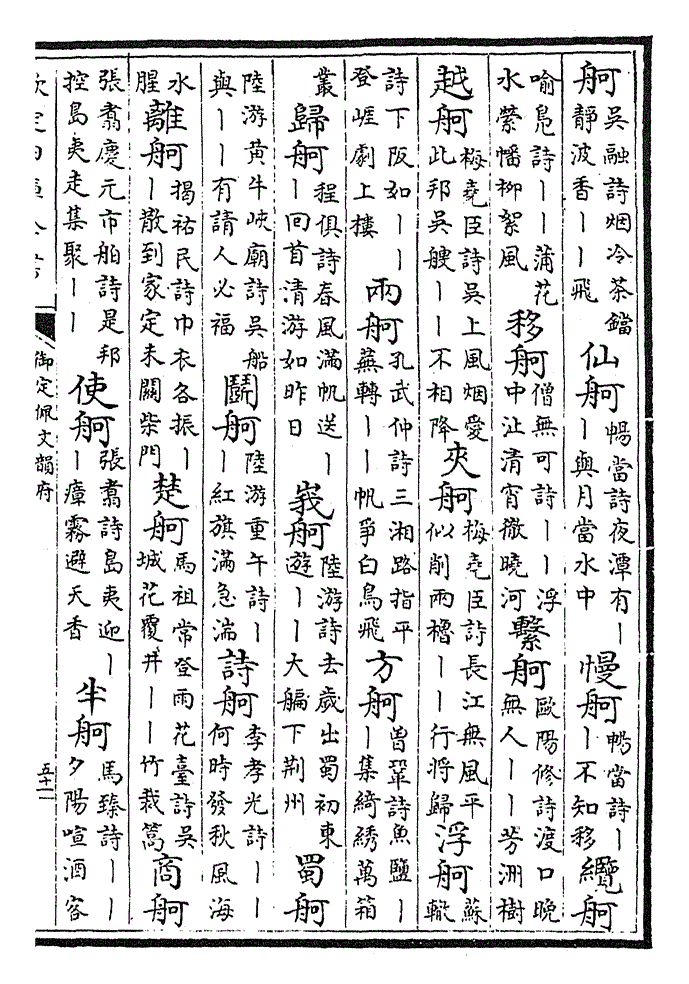 舸 吳融詩烟冷茶鐺靜波香丨丨飛 仙舸 暢當詩夜潭有丨丨與月當水中 慢舸 暢當詩丨丨不知移 纜舸
喻鳧詩丨丨蒲花水縈幡柳絮風 移舸 僧無可詩丨丨浮中沚清宵徹曉河 繫舸 歐陽修詩渡口晚無人丨丨芳洲樹
越舸 梅堯臣詩吳上風烟愛此邦吳艘丨丨不相降 夾舸 梅堯臣詩長江無風平似削兩櫓丨丨行將歸 浮舸 蘇轍
詩下阪如丨丨登崕劇上樓 兩舸 孔武仲詩三湘路指平蕪轉丨丨帆爭白鳥飛 方舸 曾鞏詩魚鹽丨丨集綺綉萬箱
叢 歸舸 程俱詩春風滿帆送丨丨回首清游如昨日 峩舸 陸游詩去歲出蜀初東遊丨丨大艑下荆州 蜀舸
陸游黄牛峽廟詩吳船與丨丨有請人必福 鬭舸 陸游重午詩丨丨紅旗滿急湍 詩舸 李孝光詩丨丨何時發秋風海
水腥 離舸 揭祐民詩巾衣各振丨丨散到家定未關柴門 楚舸 馬祖常登雨花臺詩吳城花覆井丨丨竹裁篙 商舸
張翥慶元市舶詩是邦控島夷走集聚丨丨 使舸 張翥詩島夷迎丨丨瘴霧避天香 半舸 馬臻詩丨丨夕陽喧酒客
欽定四庫全書
御定佩文韻府